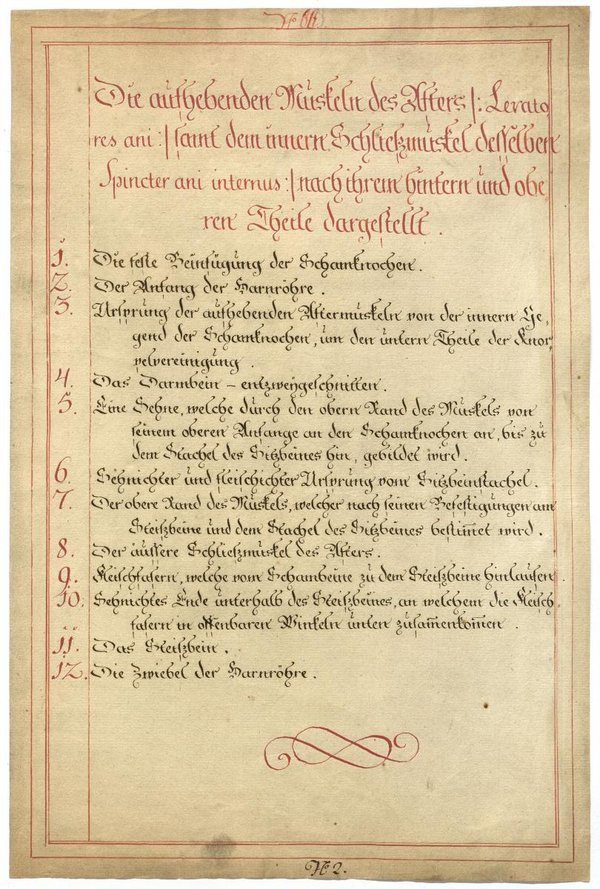 Die aufhebenden Muskeln des Afters /: Levato
res ani :/ samt dem innern Schließmuskel desselben
Spincter ani internus :/ nach ihrem hintern und obe
ren Theile dargestellt.
1. Die feste Beinfügung der Schamknochen.
2. Der Anfang der Harnröhre.
3. Ursprung der aufhebenden Aftermuskeln von der innern Ge,
gend der Schamknochen, um den untern Theile der Knor,
pelvereinigung.
4. Das Darmbein – entzweygeschnitten.
5. Eine Sehne, welche durch den obern Rand des Muskels von
seinem oberen Anfange an den Schamknochen an, bis zu
dem Stachel des Sitzbeines hin, gebildet wird.
6. Sehnichter und fleischichter Ursprung vom Sitzbeinstachel.
7. Der obere Rand des Muskels, welcher nach seinen Befestigungen am
Steißbeine und dem Stachel des Sitzbeines bestim̅et wird.
8. Der äussere Schließmuskel des Afters.
9. Fleischfasern, welche vom Schambeine zu dem Steißbeine hinlaufen.
10. Sehnichtes Ende unterhalb des Steißbeines, an welchem die Fleisch,
fasern in offenbaren Winkeln unten zusam̅enkom̅en.
11. Das Steißbein.
12. Die Zwiebel der Harnröhre.
№ 2.